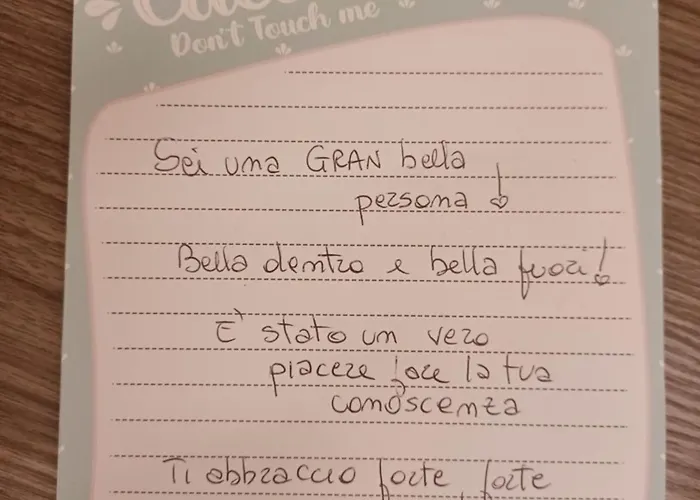 Don't Touch me
Sei una GRAN bella
persona
Bella dentro e bella fuori!
E' stato un vero
piacere fare la tua
conoscenza
Ti abbraccio forte forte